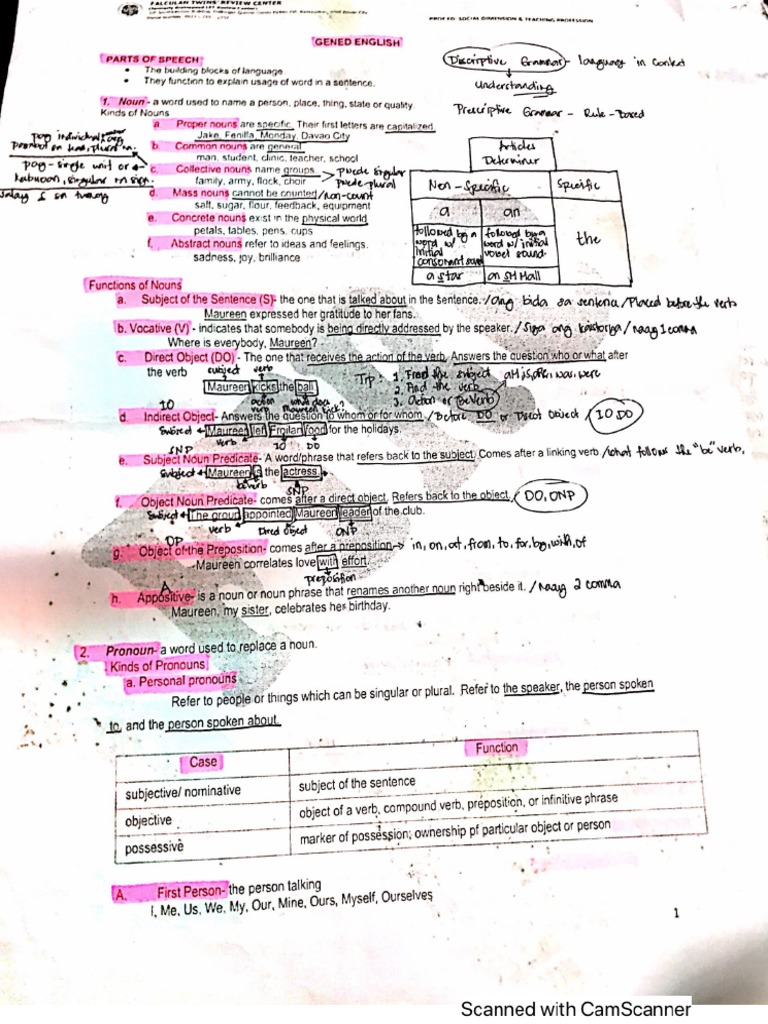 FALCULAN TWINS' REVIEW CENTER
PROF ED: SOCIAL DIMENSION & TEACHING PROFESSION
GENED ENGLISH
PARTS OF SPEECH
• The building blocks of language.
• They function to explain usage of word in a sentence.
Descriptive Grammar - language in context
Understanding
Prescriptive Grammar - Rule-based
1. Noun - a word used to name a person, place, thing, state or quality
Kinds of Nouns
a. Proper nouns are specific. Their first letters are capitalized
Jake, Fenilla, Monday, Davao City
b. Common nouns are general
man, student, clinic, teacher, school
c. Collective nouns name groups
family, army, flock, choir
puede singular
puede plural
pag individual
pag - single unit or
d. Mass nouns cannot be counted /non-count
salt, sugar, flour, feedback, equipment
e. Concrete nouns exist in the physical world
petals, tables, pens, cups
f. Abstract nouns refer to ideas and feelings.
sadness, joy, brilliance
Articles
Determiner
Non-Specific
Specific
a
an
the
followed by a word w/ initial consonant sound
followed by a word w/ initial vowel sound
a star
an SM Mall
Functions of Nouns
a. Subject of the Sentence (S)- the one that is talked about in the sentence. /Ang bida sa sentence /Placed before the verb
Maureen expressed her gratitude to her fans.
b. Vocative (V) - indicates that somebody is being directly addressed by the speaker. / Siya ang kaistorya / naay 1 comma
Where is everybody, Maureen?
c. Direct Object (DO) - The one that receives the action of the verb. Answers the question who or what after
the verb
subject verb
Maureen kicks the ball
action verb
Tip: 1. Find the subject
2. Find the verb
3. Action or Be Verb
am, is, are, was, were
IO
d. Indirect Object- Answers the question to whom or for whom /Before DO or Direct Object / IO, DO
Subject Maureen left Froilan food for the holidays.
verb IO DO
SNP
e. Subject Noun Predicate- A word/phrase that refers back to the subject. Comes after a linking verb /what follows the "be" verb.
Subject Maureen is the actress.
be verb SNP
f. Object Noun Predicate- comes after a direct object. Refers back to the object. DO, ONP
Subject The group appointed Maureen leader of the club.
verb Direct Object ONP
OP
g. Object of the Preposition- comes after a preposition → in, on, at, from, to, for, by, with, of
-Maureen correlates love with effort.
preposition
A
h. Appositive- is a noun or noun phrase that renames another noun right beside it. / naay 2 comma
Maureen, my sister, celebrates her birthday.
2. Pronoun- a word used to replace a noun.
Kinds of Pronouns
a. Personal pronouns
Refer to people or things which can be singular or plural. Refer to the speaker, the person spoken
to, and the person spoken about.
Case Function
subjective/ nominative subject of the sentence
objective object of a verb, compound verb, preposition, or infinitive phrase
possessive marker of possession; ownership pf particular object or person
A. First Person- the person talking
I, Me, Us, We, My, Our, Mine, Ours, Myself, Ourselves
1
Scanned with CamScanner